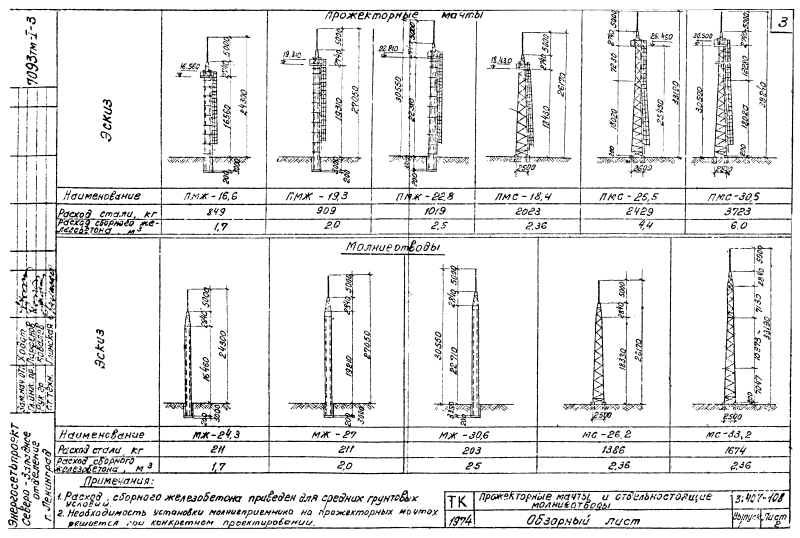 7093тм-I-3
3
Прожекторные мачты
Эскиз
16.560
2740 5000
16560
24300
200
3000
19.310
2740 5000
19310
27050
3000
200
22.810
2740 5000
30550
22810
200
18.430
2740 5000
18430
26170
2500
2740 5000
26.450
7230
18020
200
25450
33190
2600
30.500
2740 5000
12280
18020
200
30500
38240
Наименование ПМЖ-16,6 ПМЖ-19,3 ПМЖ-22,8 ПМС-18,4 ПМС-25,5 ПМС-30,5
Расход стали, кг 849 909 1019 2023 2429 3723
Расход сборного же-
лезобетона м³ 1,7 2,0 2,5 2,36 4,4 6,0
Молниеотводы
Эскиз
2840 5000
16460
24300
200
3000
2840 5000
19210
27050
200
3000
2840 5000
30550
22710
200
2840 5000
18330
26170
2500
2840 5000
33190
200
2500
Наименование МЖ-24,3 МЖ-27 МЖ-30,6 МС-26,2 МС-33,2
Расход стали, кг 211 211 203 1386 1674
Расход сборного
железобетона, м³ 1,7 2,0 2,5 2,36 2,36
Примечания:
1. Расход сборного железобетона приведен для средних грунтовых
условий.
2. Необходимость установки молниеприемника на прожекторных мачтах
решается при конкретном проектировании.
ТК
1974
Прожекторные мачты и отдельностоящие
молниеотводы
Обзорный лист
3.407-108
Выпуск Лист
2
Энергосетьпроект
Северо-Западное
отделение
г. Ленинград